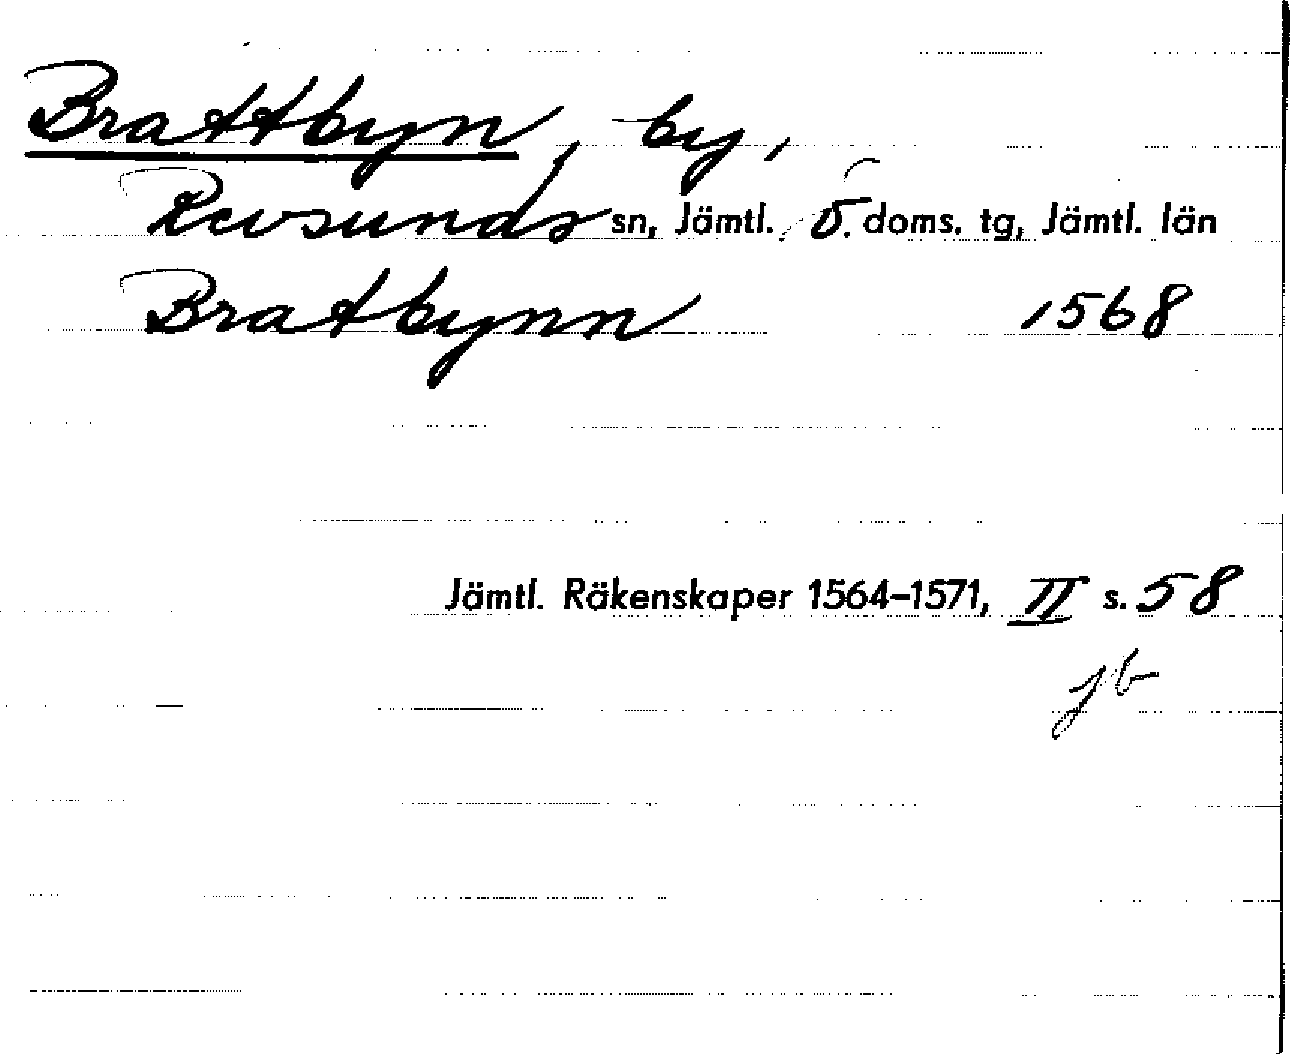 Brattbyn, by,
Revsunds sn, Jämtl. Ö. doms. tg, Jämtl. län
Bratbynn 1568
Jämtl. Räkenskaper 1564–1571, II s. 58
jb